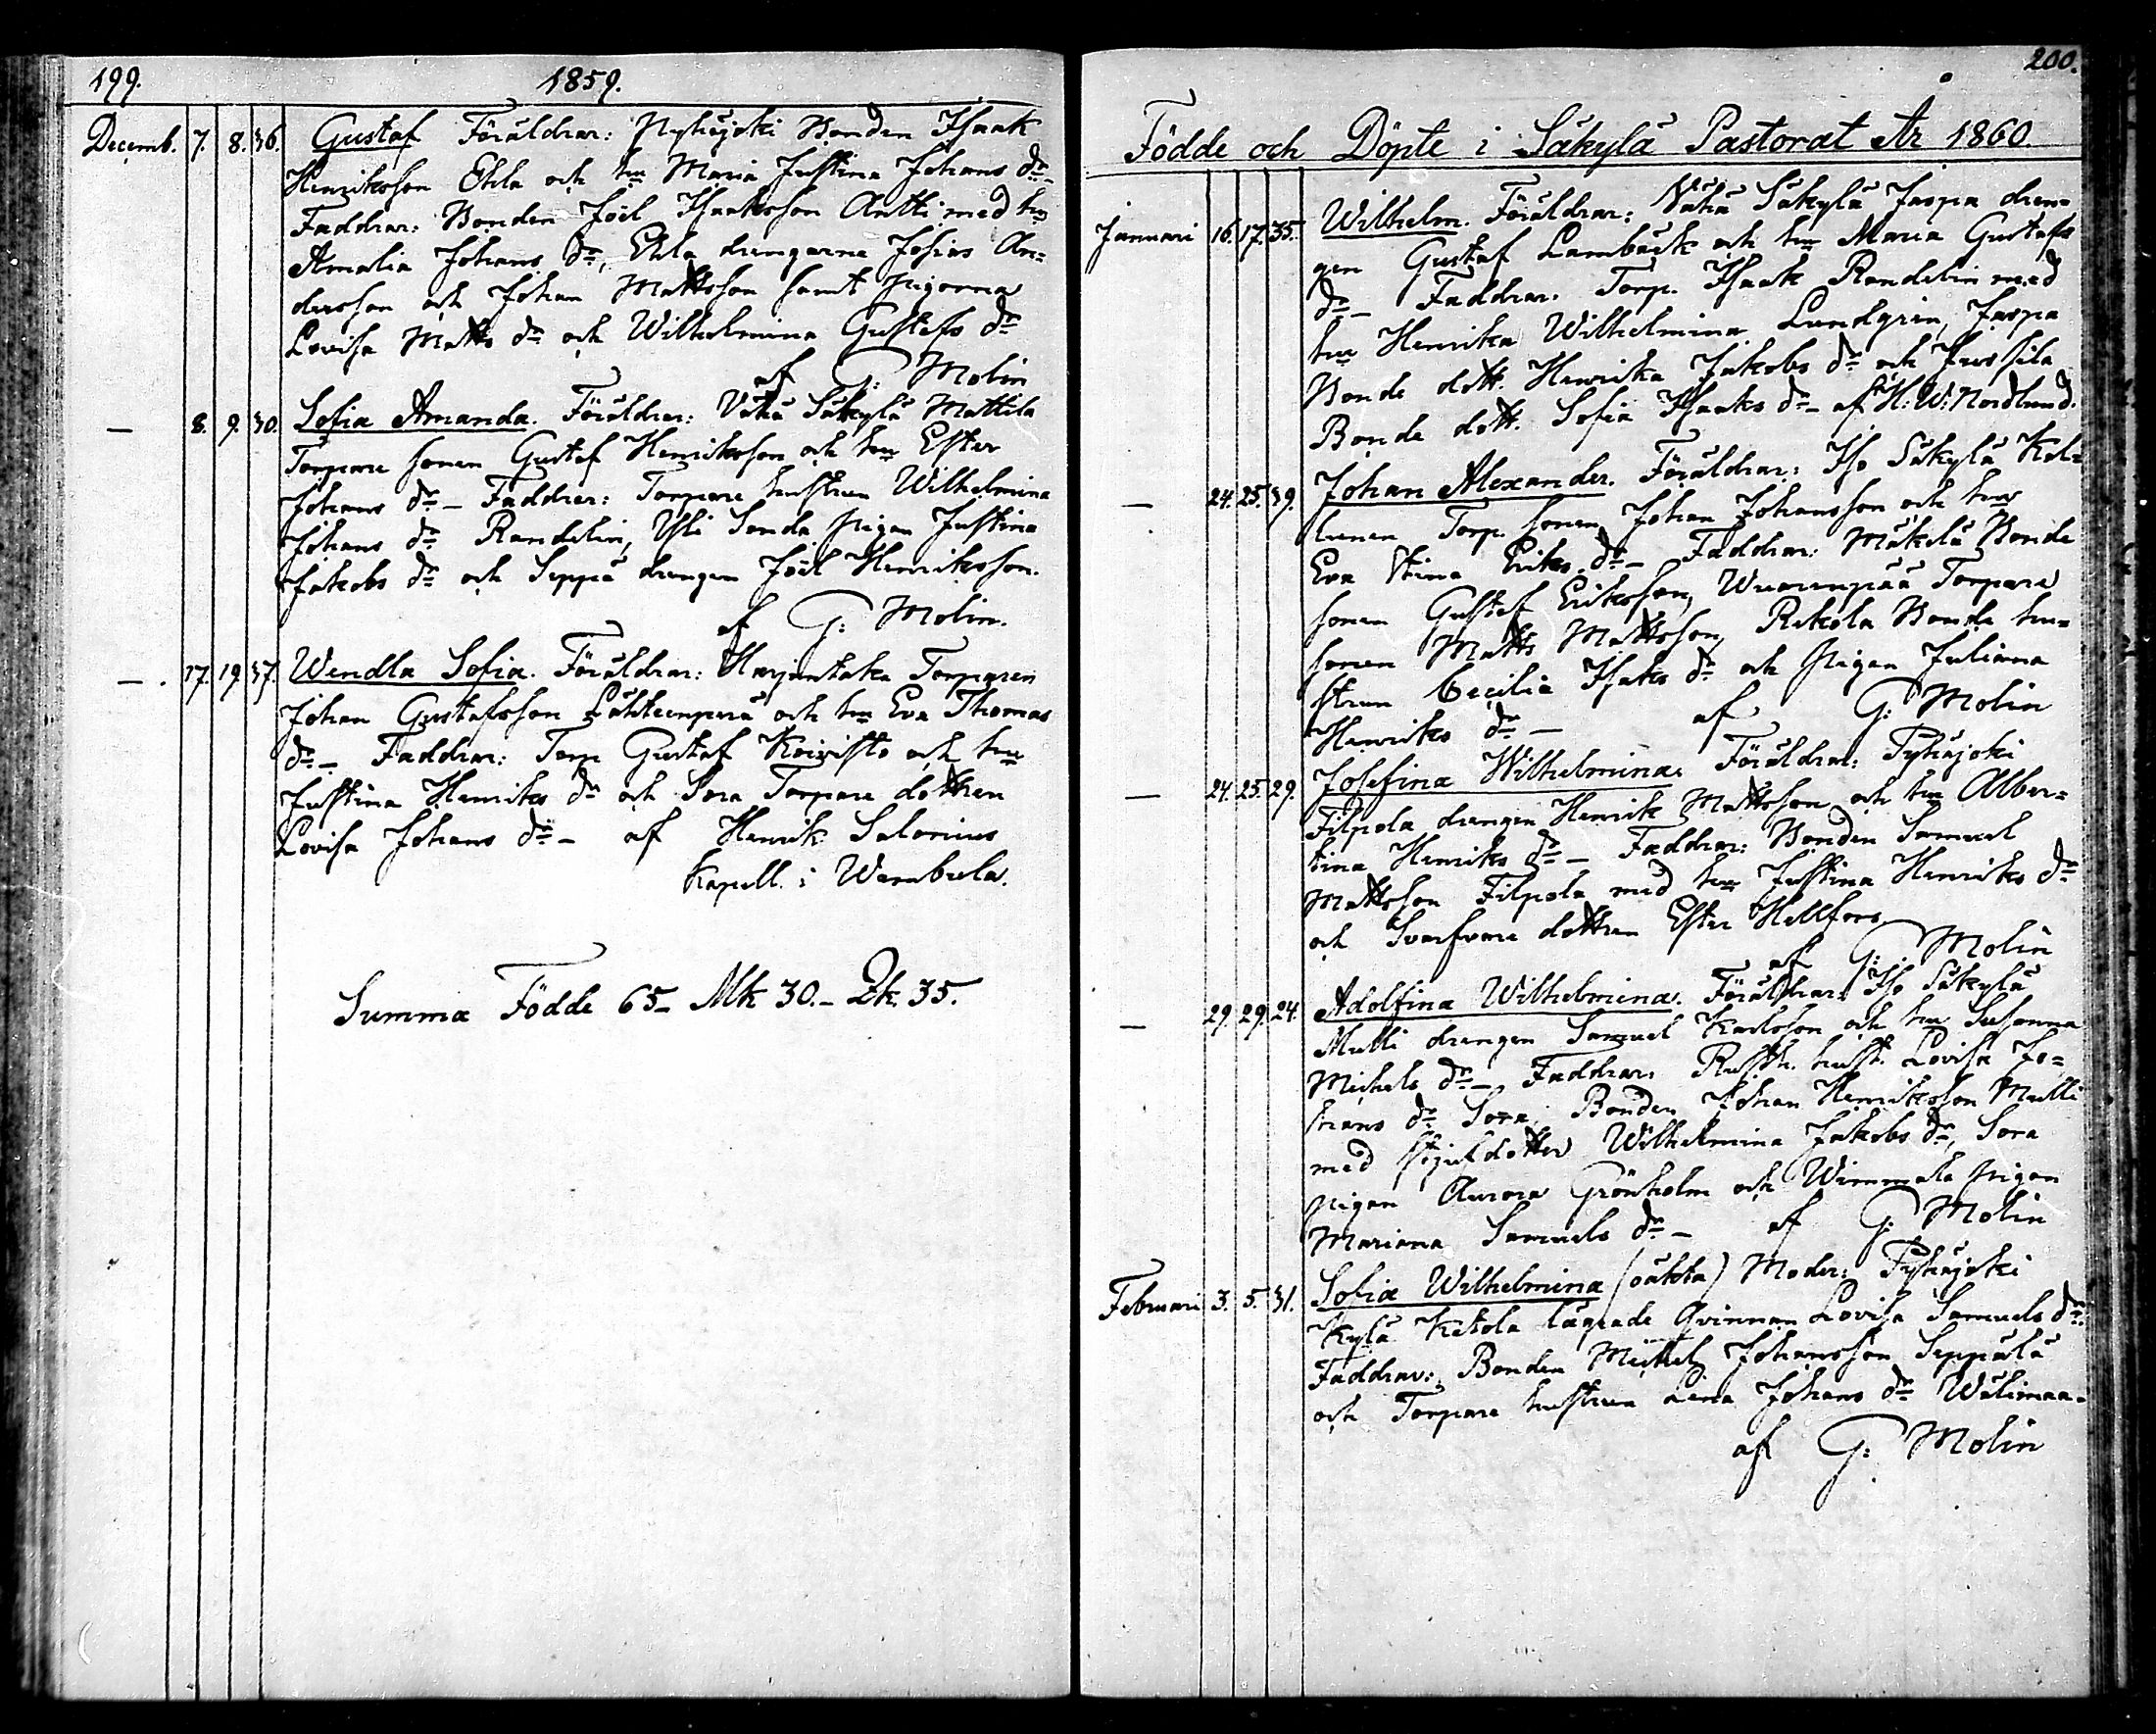 199.
1859.
Decemb. 7. 8. 36. Gustaf Föräldrar: Pyhäjoki Bonden Isaak
Henriksson Ekla och hu Maria Justina Johans dr_
Faddrar: Bonden Joël Isaaksson Antti med hu
Amalia Johans dr, Ekla drengarne Josias An=
dersson och Johan Mattsson samt pigorna
Lovisa Matts dr och Wilhelmina Gustafs dr
af G: Molin
— 8. 9. 30. Sofia Amanda. Föräldrar: Vähä Säkylä Mattila
Torpare sonen Gustaf Henriksson och hu Ester
Johans dr – Faddrar: Torpare hustrun Wilhelmina
Johans dr Randelin, Yli Sonda pigan Justina
Jakobs dr och Seppä drengen Joël Henriksson.
af G: Molin.
— . 17. 19. 37. Wendla Sofia. Föräldrar: Harjuntaka Torparen
Johan Gustafsson Lähteenperä och hu Eva Thomas
dr – Faddrar: Torp Gustaf Koivisto och hu
Justina Henriks dr och Sora Torpare dottren
Lovisa Johans dr – af Henrik Salonius
Kapell. i Wambula.
Summa Födde 65– Mk 30.– Qk. 35.
200.
Födde och Döpte i Säkylä Pastorat År 1860.
Januari 16. 17. 35. Wilhelm. Föräldrar: Vähä Säkylä Jaspa dren=
gen Gustaf Lambäck och hu Maria Gustafs
dr – Faddrar: Torp. Isaak Randelin med
hu Henrika Wilhelmina Lundgrén, Jaspa
Bonde dott. Henrika Jakobs dr och Jussila
Bonde dott. Sofia Isaaks dr – af H: W: Nordlund.
— 24. 25. 39. Johan Alexander. Föräldrar: Iso Säkylä Kol=
Torp. sonen Johan Johansson och hu
Eva Stina Eriks dr – Faddrar: Mäkelä Bonde
sonen Gustaf Eriksson, Wuorenpää Torpare
sonen Matts Mattsson, Rekola Bonde hu=
strun Cecilia Isaks dr och pigan Juliana
Henriks dr – af G: Molin
— 24. 25. 29. Josefina Wilhelmina. Föräldrar: Pyhäjoki
Filpola drengen Henrik Mattsson och hu Alber=
tina Henriks dr – Faddrar: Bonden Samuel
Mattsson Filpola med hu Justina Henriks dr
och Svarfvare dottren Ester Hellfors
af G: Molin
— 29. 29. 24. Adolfina Wilhelmina. Föräldrar: Iso Säkylä
Multi drengen Samuel Karlsson och hu Susanna
Michels dr – Faddrar: Rusth. hust. Lovisa Jo=
hans dr Sora, Bonden Johan Henriksson Multi
med styfdotter Wilhelmina Jakobs dr, Sora
pigan Aurora Grönholm och Wimmala pigan
Mariana Samuels dr – af G: Molin
Februari 3. 5. 31. Sofia Wilhelmina (oäkta) Moder: Pyhäjoki
Kylä Ketola lägrade Qvinnan Lovisa Samuels dr.
Faddrar: Bonden Michel Johansson Seppälä
och Torpare hustrun Lena Johans dr Wälimaa.
af G: Molin